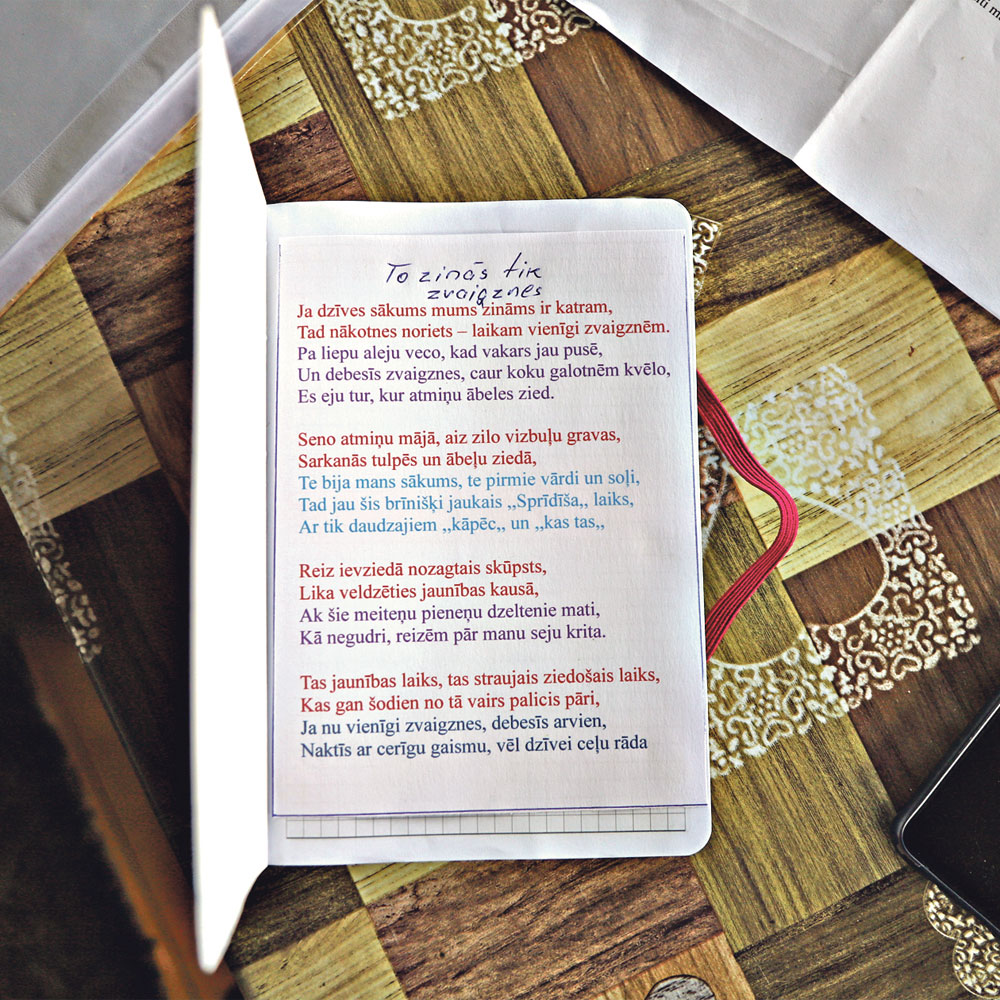 To zinās tik
zvaigznes
Ja dzīves sākums mums zināms ir katram,
Tad nākotnes noriets – laikam vienīgi zvaigznēm.
Pa liepu aleju veco, kad vakars jau pusē,
Un debesīs zvaigznes, caur koku galotnēm kvēlo,
Es eju tur, kur atmiņu ābeles zied.
Seno atmiņu mājā, aiz zilo vizbuļu gravas,
Sarkanās tulpēs un ābeļu ziedā,
Te bija mans sākums, te pirmie vārdi un soļi,
Tad jau šis brīnišķi jaukais ,,Sprīdīša,, laiks,
Ar tik daudzajiem ,,kāpēc,, un ,,kas tas,,
Reiz ievziedā nozagtais skūpsts,
Lika veldzēties jaunības kausā,
Ak šie meiteņu pieneņu dzeltenie mati,
Kā negudri, reizēm pār manu seju krita.
Tas jaunības laiks, tas straujais ziedošais laiks,
Kas gan šodien no tā vairs palicis pāri,
Ja nu vienīgi zvaigznes, debesīs arvien,
Naktīs ar cerīgu gaismu, vēl dzīvei ceļu rāda